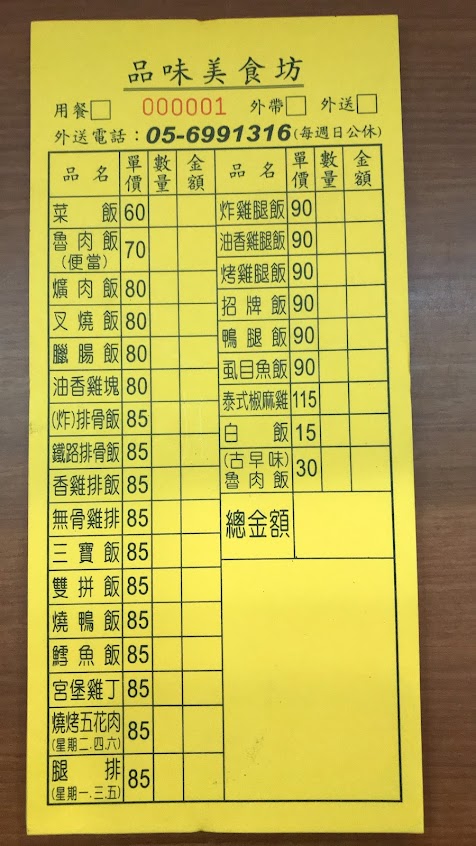 品味美食坊
用餐□ 000001 外帶□ 外送□
外送電話：05-6991316(每週日公休)
品名 單價 數量 金額
菜飯 60
魯肉飯(便當) 70
爌肉飯 80
叉燒飯 80
臘腸飯 80
油香雞塊 80
(炸)排骨飯 85
鐵路排骨飯 85
香雞排飯 85
無骨雞排 85
三寶飯 85
雙拼飯 85
燒鴨飯 85
鱈魚飯 85
宮堡雞丁 85
燒烤五花肉 85
(星期二.四.六)
腿排 85
(星期一.三.五)
品名 單價 數量 金額
炸雞腿飯 90
油香雞腿飯 90
烤雞腿飯 90
招牌飯 90
鴨腿飯 90
虱目魚飯 90
泰式椒麻雞 115
白飯 15
(古早味)
魯肉飯 30
總金額